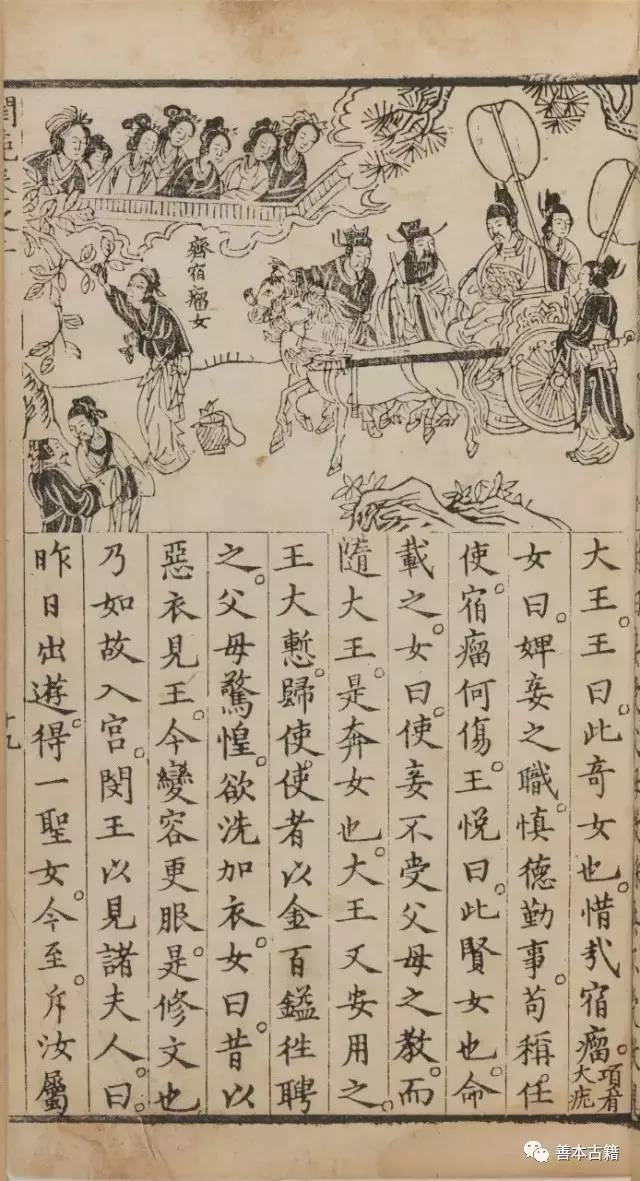 齊宿瘤女
大王。王曰。此奇女也。惜哉宿瘤。項有大疣
女曰。婢妾之職。慎德勤事。苟稱任
使。宿瘤何傷。王悅曰。此賢女也。命
載之。女曰。使妾不受父母之教。而
隨大王。是奔女也。大王又安用之。
王大慙。歸使使者以金百鎰往聘
之。父母驚惶。欲洗加衣。女曰。昔以
惡衣見王。今變容更服。是修文也
乃如故入宮。閔王以見諸夫人。曰。
昨日出遊。得一聖女。今至。斥汝屬
十九
善本古籍